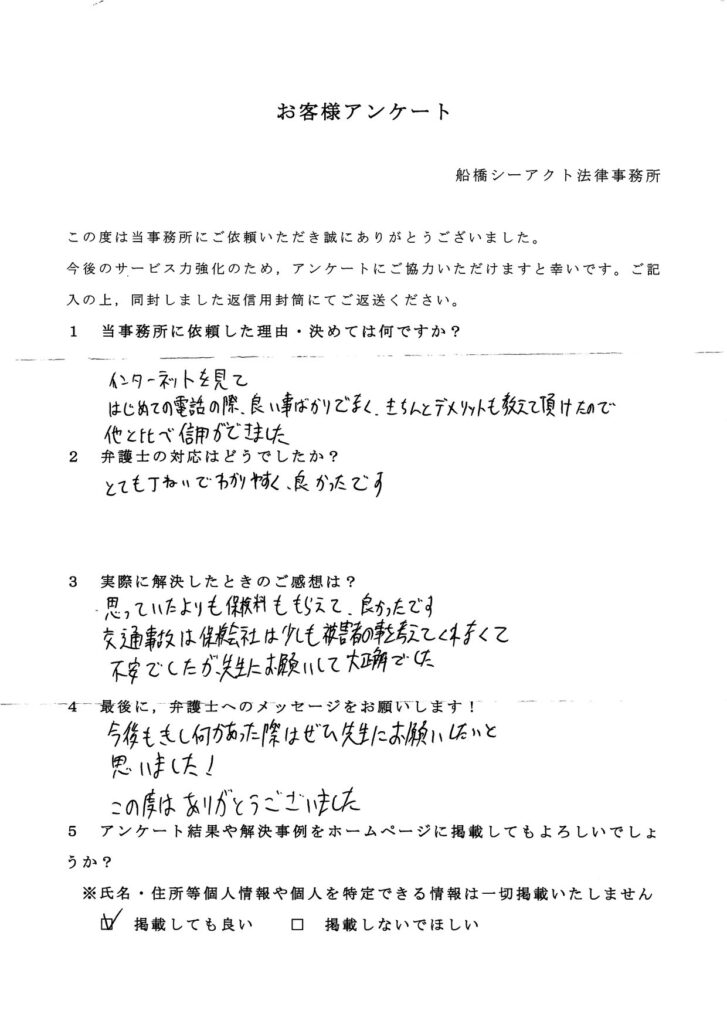 お客様アンケート
船橋シーアクト法律事務所
この度は当事務所にご依頼いただき誠にありがとうございました。
今後のサービス力強化のため，アンケートにご協力いただけますと幸いです。ご記
入の上，同封しました返信用封筒にてご返送ください。
1　当事務所に依頼した理由・決めては何ですか？
インターネットを見て
はじめての電話の際、良い事ばかりでなく、きちんとデメリットも教えて頂けたので
他と比べ信用ができました
2　弁護士の対応はどうでしたか？
とても丁ねいでわかりやすく、良かったです
3　実際に解決したときのご感想は？
思っていたよりも保険料ももらえて、良かったです
交通事故は保険会社は少しも被害者の事を考えてくれなくて
不安でしたが、先生にお願いして大正解でした
4　最後に，弁護士へのメッセージをお願いします！
今後もし何かあった際はぜひ先生にお願いしたいと
思いました！
この度はありがとうございました
5　アンケート結果や解決事例をホームページに掲載してもよろしいでしょ
うか？
※氏名・住所等個人情報や個人を特定できる情報は一切掲載いたしません
☑　掲載しても良い　　□　掲載しないでほしい